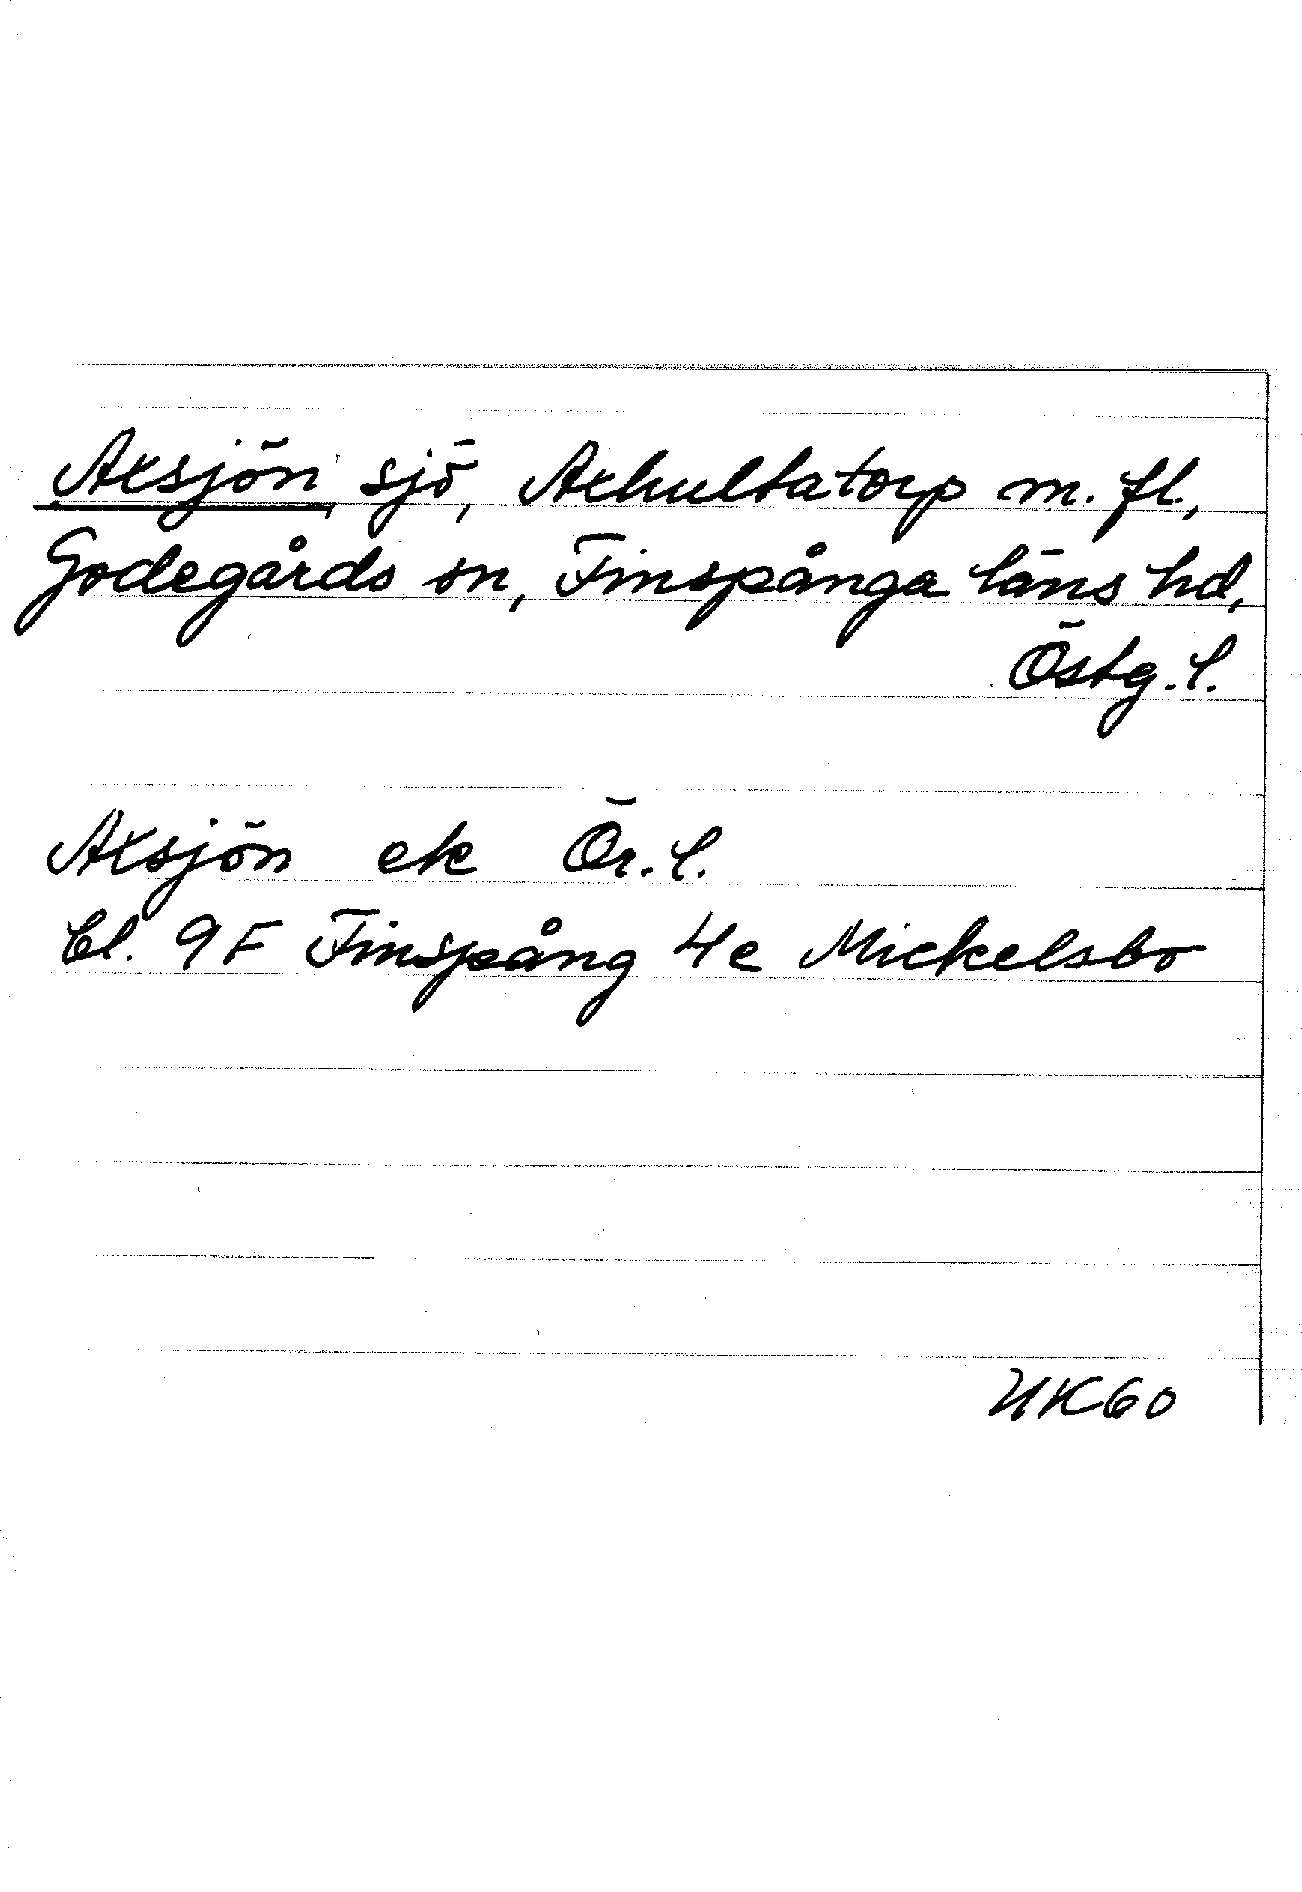 Axsjön, sjö, Axhultatorp m. fl.,
Godegårds sn, Finspånga läns hd,
Östg. l.
Axsjön ek Ör. l.
bl. 9F Finspång 4e Mickelsbo
HK60